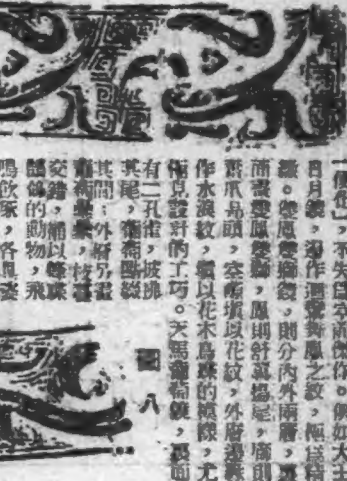 ,不失爲 傑作。例如大
日月鏡, 作迴鸞舞鳳之紋,極爲精
緻。雙鳳雙獅鏡,則分內外兩層,裏
面 雙鳳雙獅,鳳則舒翼揚尾,獅則
爪昂頭,空處填以花紋,外層邊緣
作水浪紋, 以花木鳥 的 ,尤
極見設計的工巧。天馬葡萄鏡,裏面
有二孔雀,披拂
其尾,葡萄點綴
其間;外層另畫
葡萄纍纍,枝蔓
交錯, 以蜂蝶
的動物,飛
鳴飲啄,各具姿
圖八